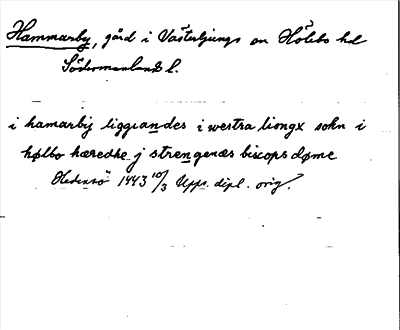 Hammarby, gård i Västerljungs sn Hölebo hd
Södermanlands l.
i hamarby liggiandes i westra liongx sokn i
hølbo hæredhe j strengenæs biscops døme
Hedensö 1443 10/3 Upps. dipl. orig.